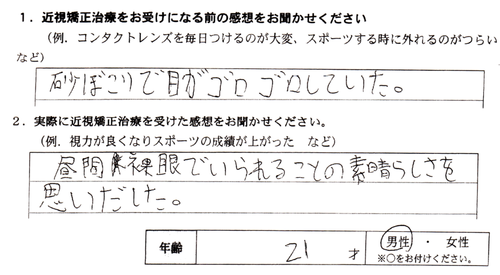 １．近視矯正治療をお受けになる前の感想をお聞かせください
（例．コンタクトレンズを毎日つけるのが大変、スポーツする時に外れるのがつらい
など）
砂ぼこりで目がゴロゴロしていた。
２．実際に近視矯正治療を受けた感想をお聞かせください。
（例．視力が良くなりスポーツの成績が上がった　など）
昼間裸眼でいられることの素晴らしさを
思いだした。
年齢　21　才　男性　・　女性
※○をお付けください。